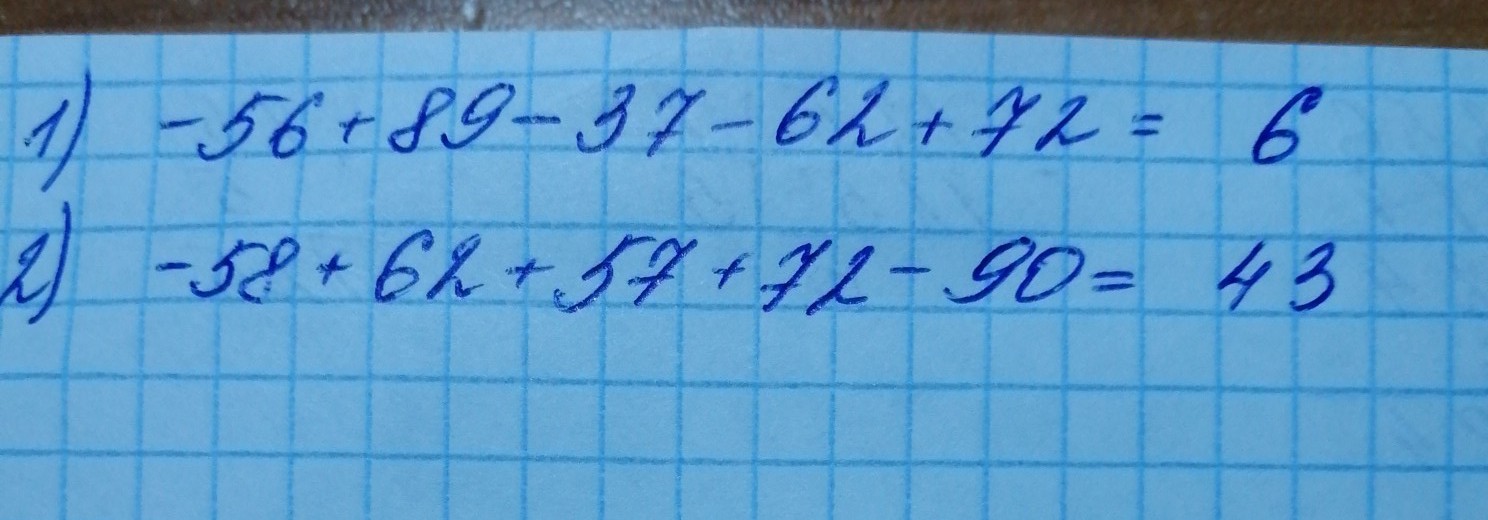 1) -56+89-37-62+72= 6
2) -58+62+57+72-90= 43